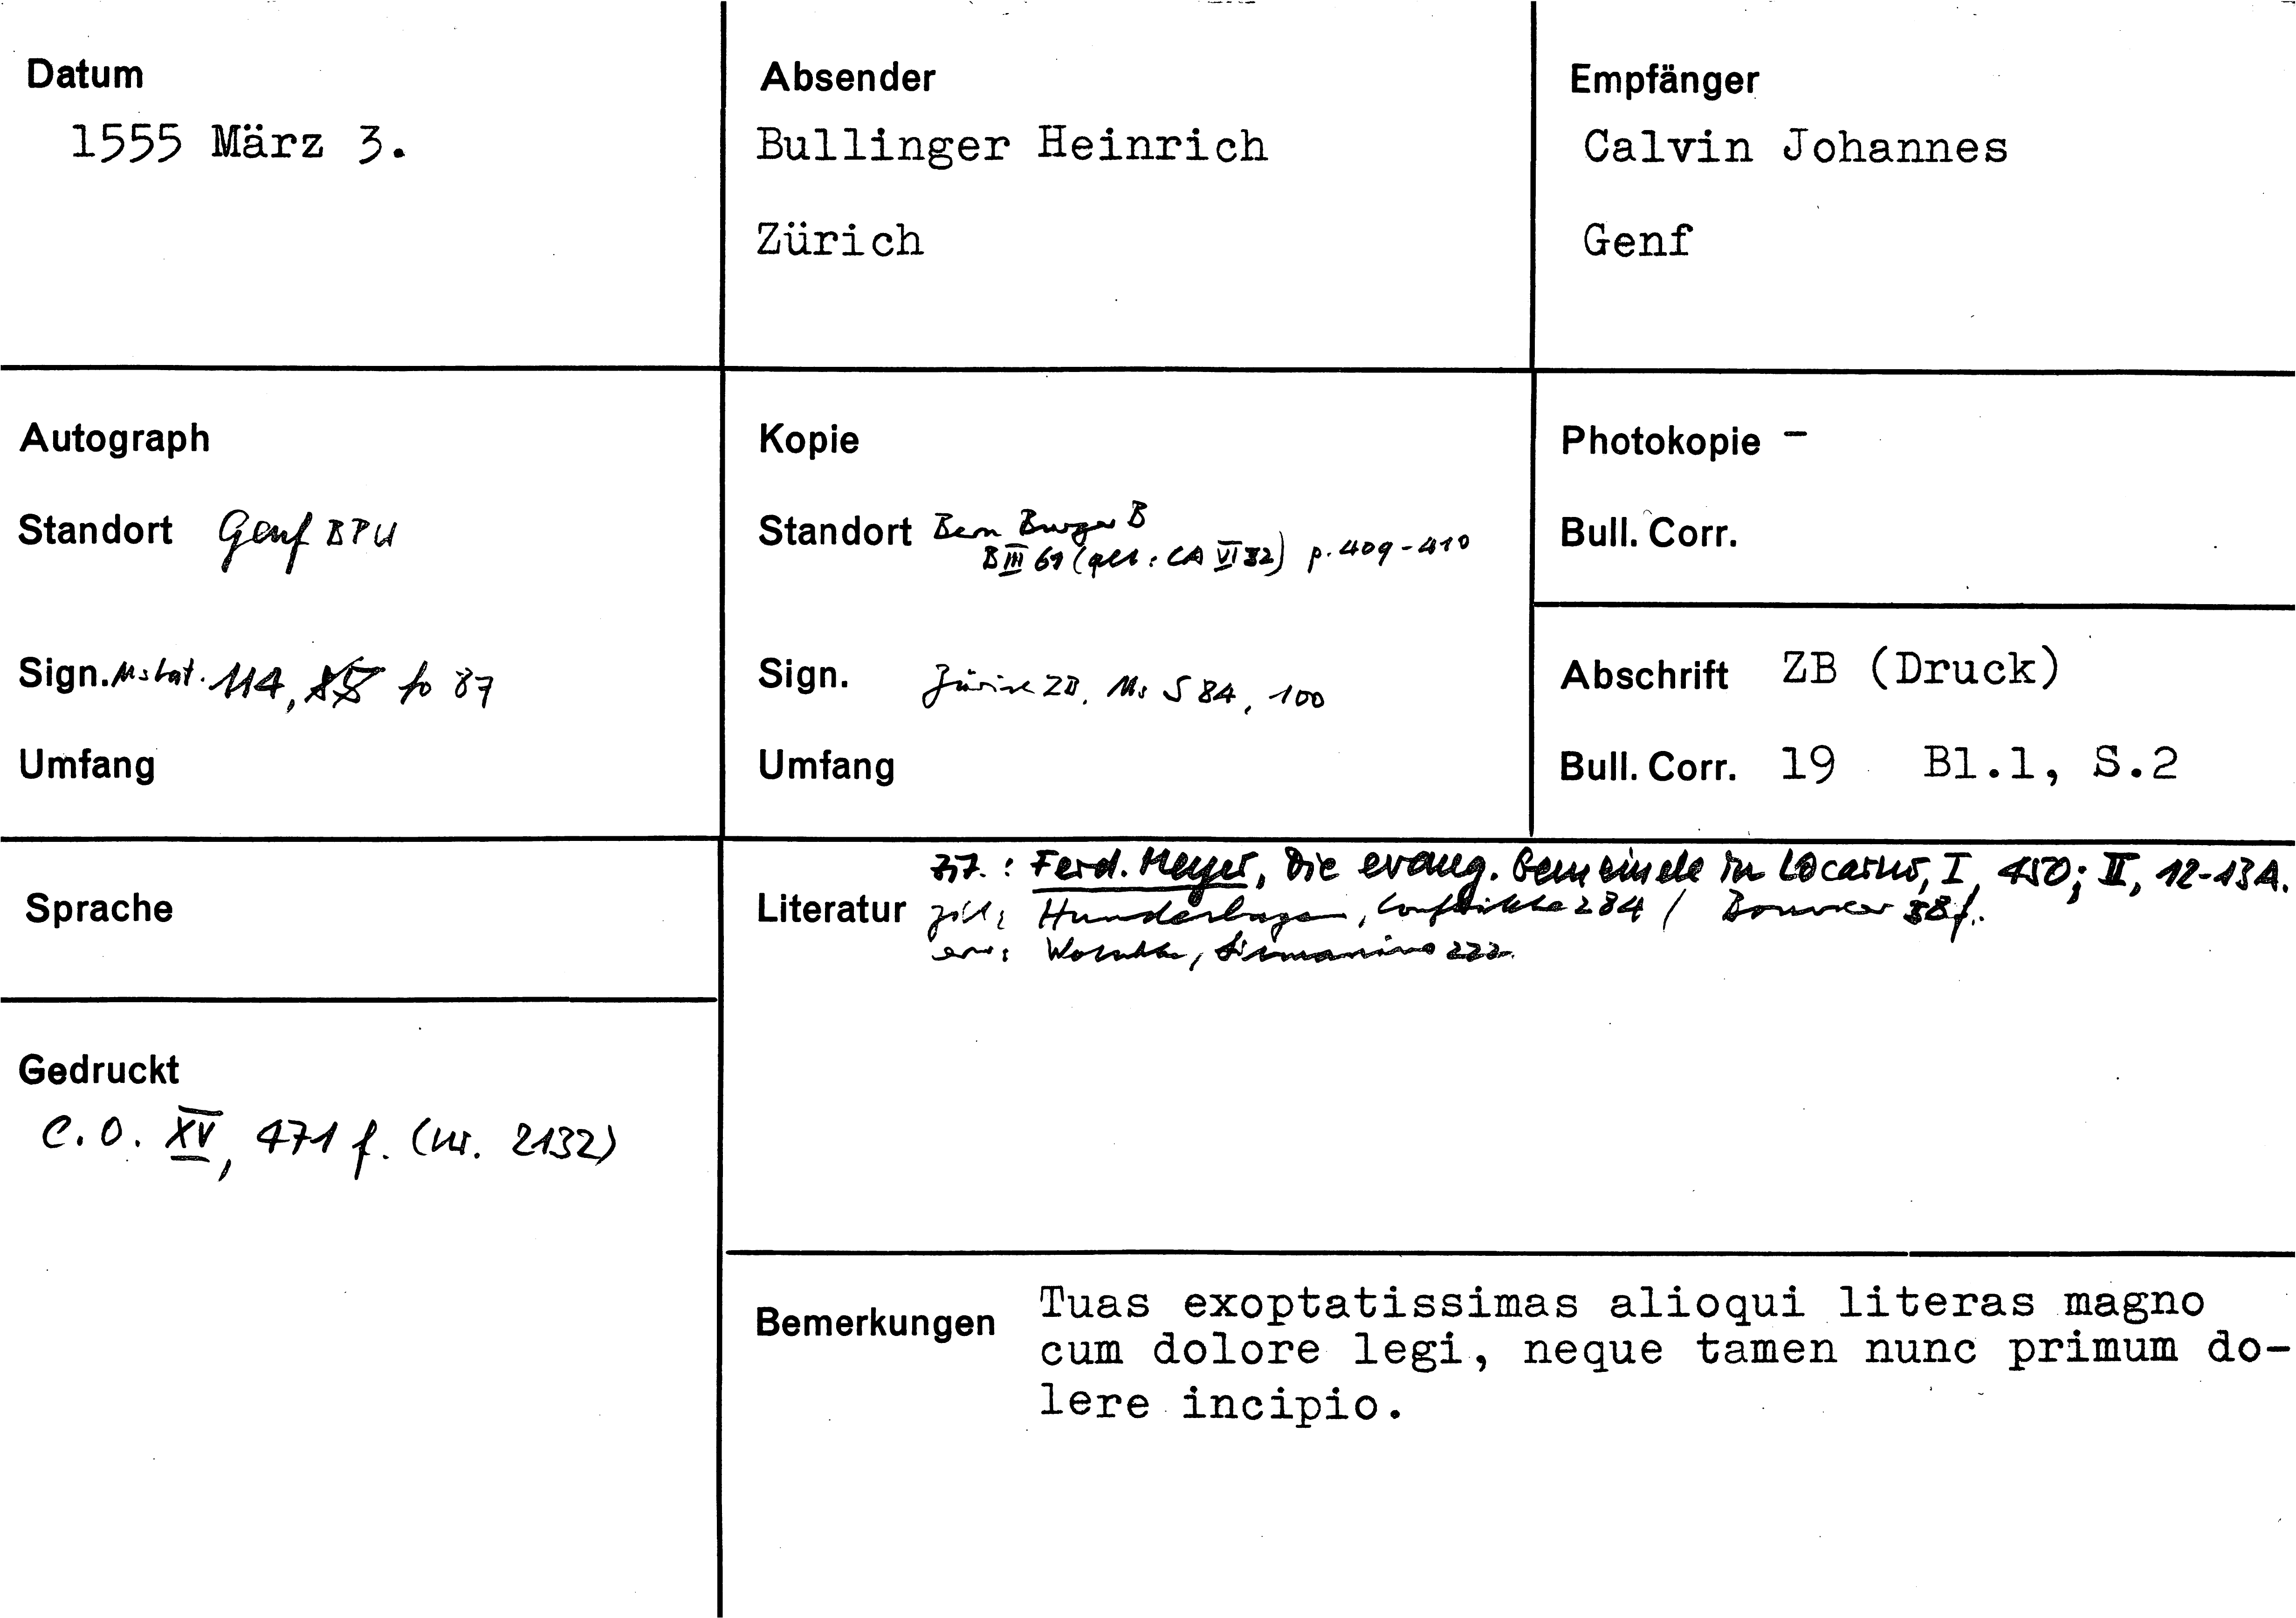 Datum
1555 März 3.
Absender
Bullinger Heinrich
Zürich
Empfänger
Calvin Johannes
Genf
Autograph
Standort Genf BPU
Sign. Ms lat. 114, fo 87
Umfang
Kopie
Standort Bern Burger B
B III 61 ( : CA VI 32) p. 409-410
Sign. Zürich ZB, Ms S 84, 100
Umfang
Photokopie -
Bull. Corr.
Abschrift ZB (Druck)
Bull. Corr. 19 Bl.1, S.2
Sprache
Gedruckt
C.O. XV, 471 f. (nr. 2132)
Literatur
zit.: Ferd. Meyer, Die evang. Gemeinde in Locarno, I, 450; II, 12-13A.
zit.: Hundeshagen, Conflikte 284 / Bouvier 38f.
erw: Wotschke, Lismanino 222.
Bemerkungen
Tuas exoptatissimas alioqui literas magno
cum dolore legi, neque tamen nunc primum do-
lere incipio.